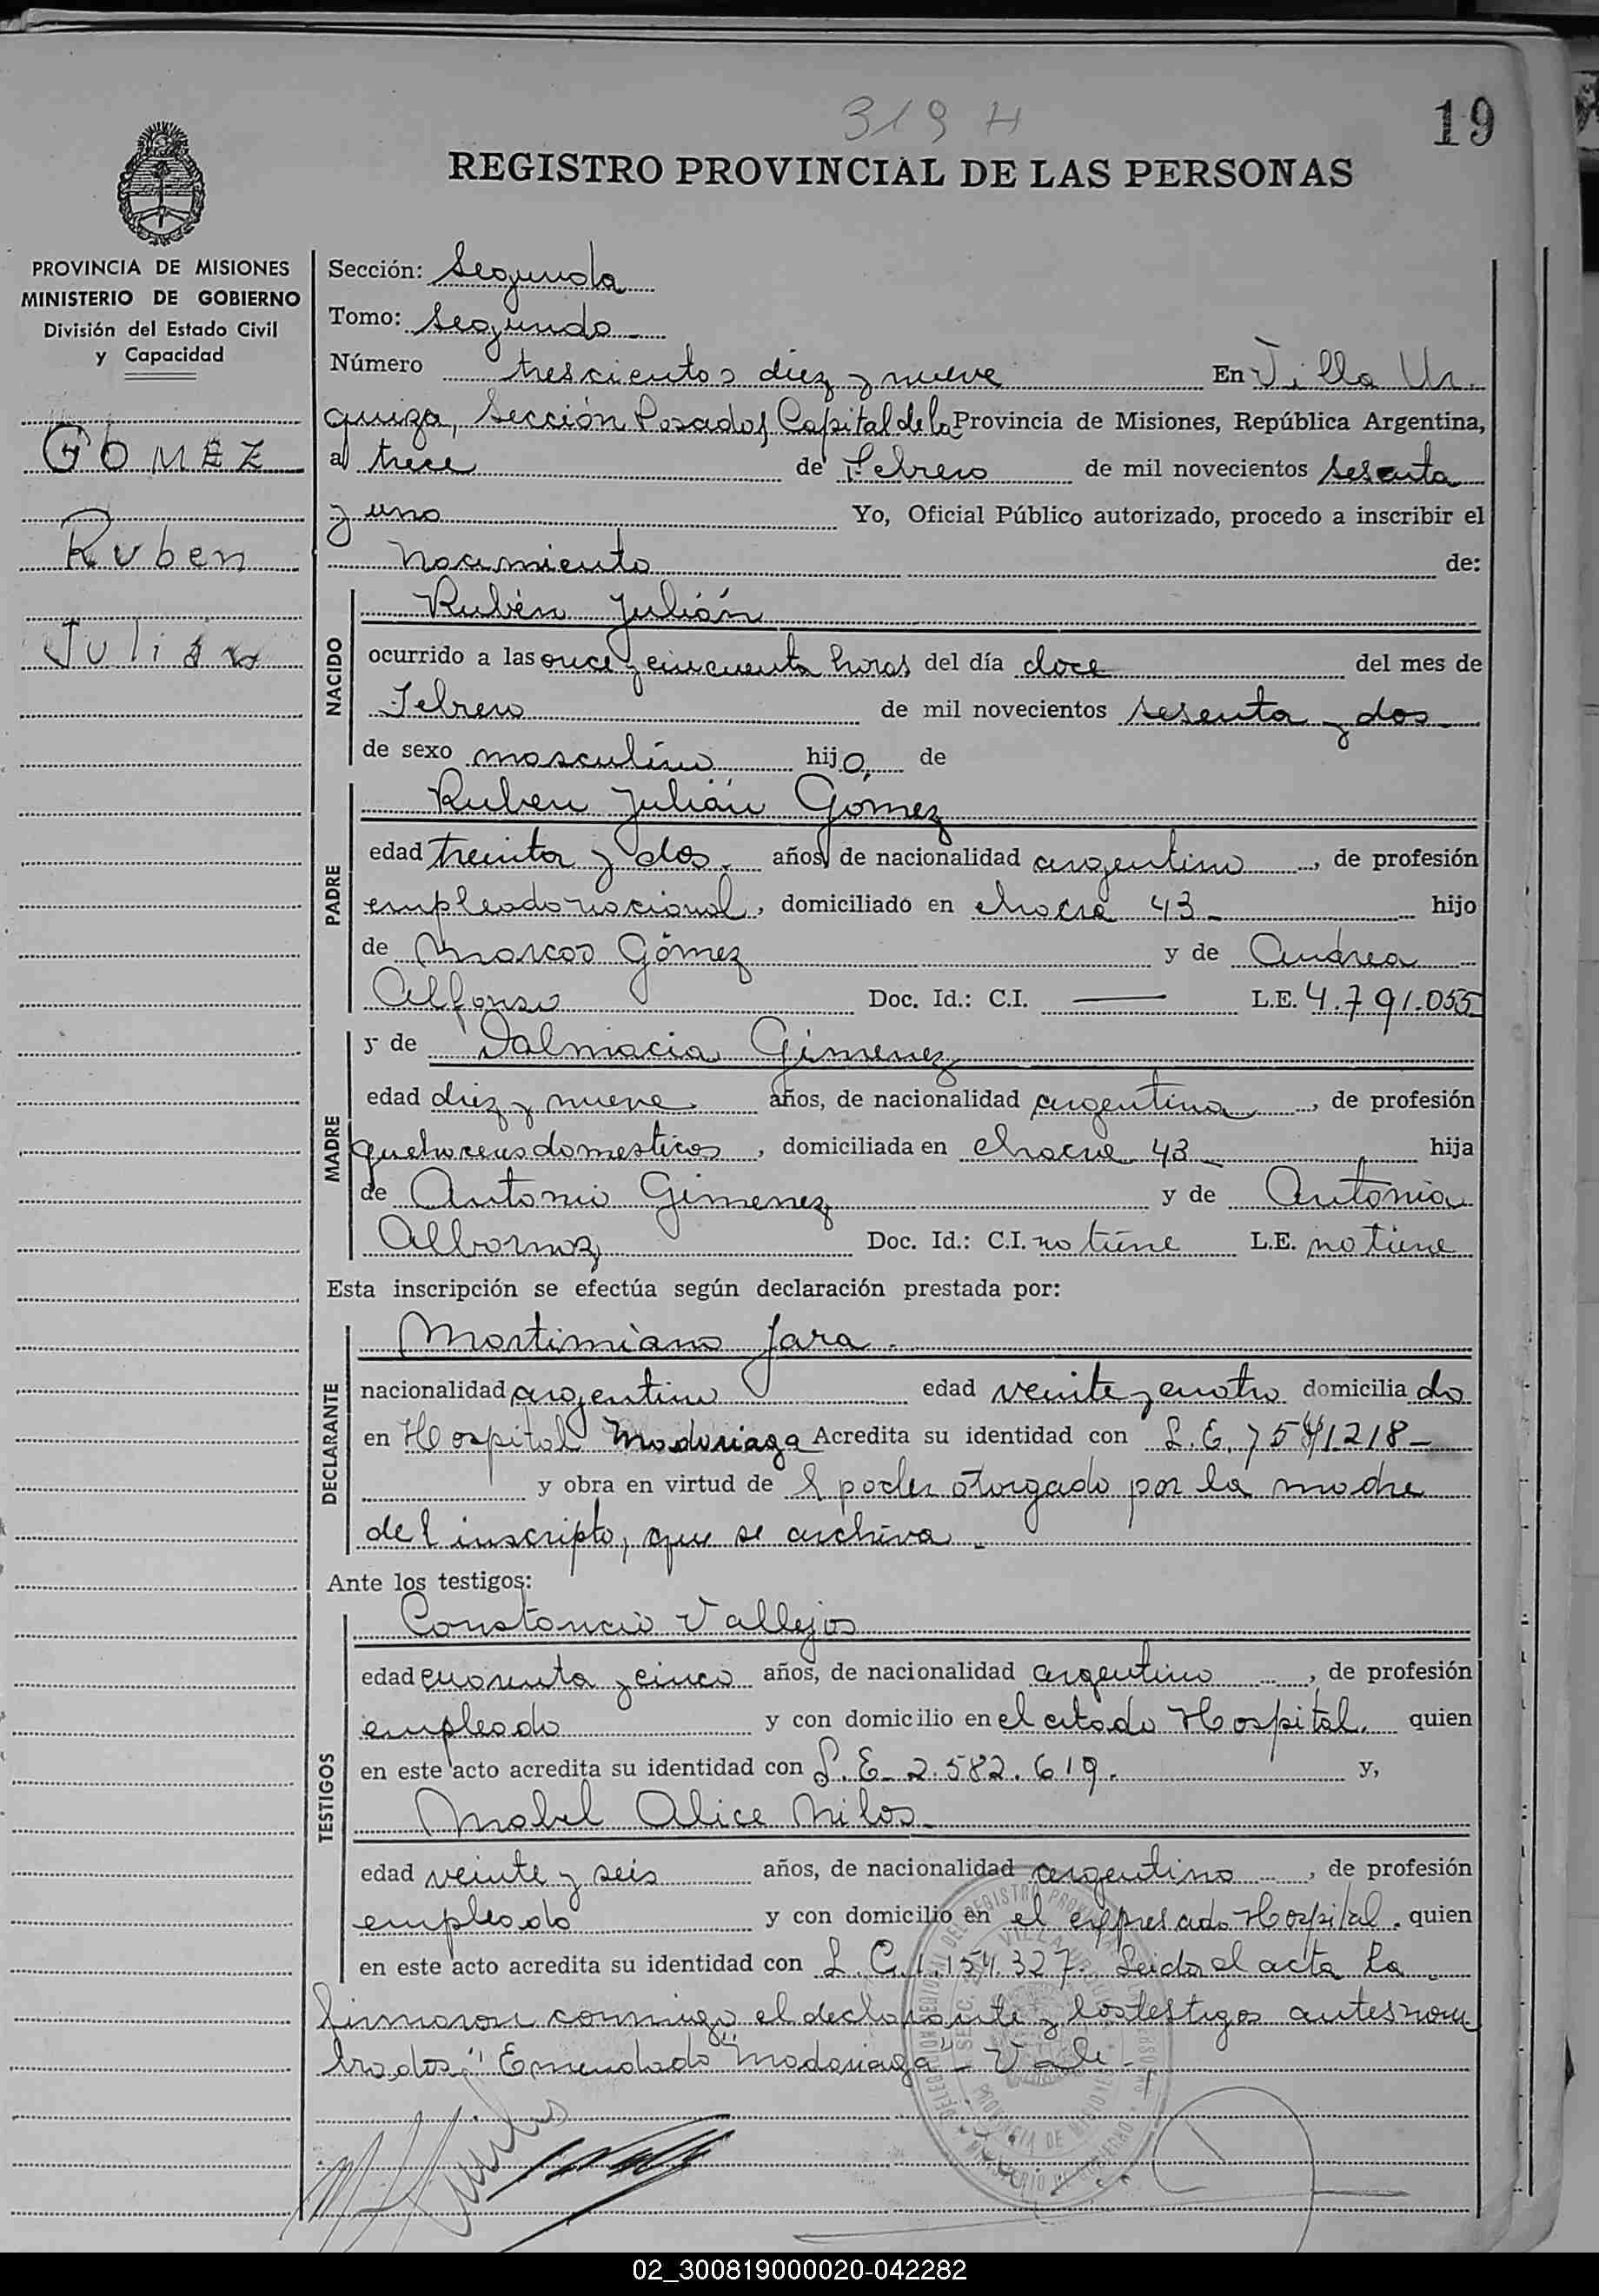 319 H
19
REGISTRO PROVINCIAL DE LAS PERSONAS
PROVINCIA DE MISIONES
MINISTERIO DE GOBIERNO
División del Estado Civil
y Capacidad
GOMEZ
Ruben
Julián
Sección: Segunda
Tomo: Segundo
Número trescientos diez y nueve En Villa Ur
quiza, Sección Posadas, Capital de la Provincia de Misiones, República Argentina,
a trece de Febrero de mil novecientos sesenta
y uno Yo, Oficial Público autorizado, procedo a inscribir el
nacimiento de:
NACIDO
Rubén Julián
ocurrido a las once y cincuenta horas del día doce del mes de
Febrero de mil novecientos sesenta y dos
de sexo masculino hijo de
PADRE
Ruben Julián Gómez
edad treinta y dos años, de nacionalidad argentino, de profesión
empleado nacional, domiciliado en chacra 43 hijo
de Marcos Gómez y de Andrea
Alfonso Doc. Id.: C.I. — L.E. 4.791.055
MADRE
y de Dalmacia Gimenez
edad diez y nueve años, de nacionalidad argentina, de profesión
quehaceres domesticos, domiciliada en chacra 43 hija
de Antonio Gimenez y de Antonia
Albornoz Doc. Id.: C.I. no tiene L.E. no tiene
Esta inscripción se efectúa según declaración prestada por:
DECLARANTE
Martimiano Jara
nacionalidad argentino edad veinte y cuatro domiciliado
en Hospital Madariaga Acredita su identidad con L.E. 7541218
y obra en virtud del poder otorgado por la madre
del inscripto, que se archiva.
Ante los testigos:
TESTIGOS
Constancio Vallejos
edad cuarenta y cinco años, de nacionalidad argentino, de profesión
empleado y con domicilio en el citado Hospital, quien
en este acto acredita su identidad con L.E. 2.582.619. y,
Mabel Alice Milos
edad veinte y seis años, de nacionalidad argentina, de profesión
empleada y con domicilio en el expresado Hospital, quien
en este acto acredita su identidad con L.C. 1.154.327. Leida el acta la
firmaron conmigo el declarante y los testigos antes nom
brados. "Emendado Madariaga" - Vale.
02_300819000020-042282